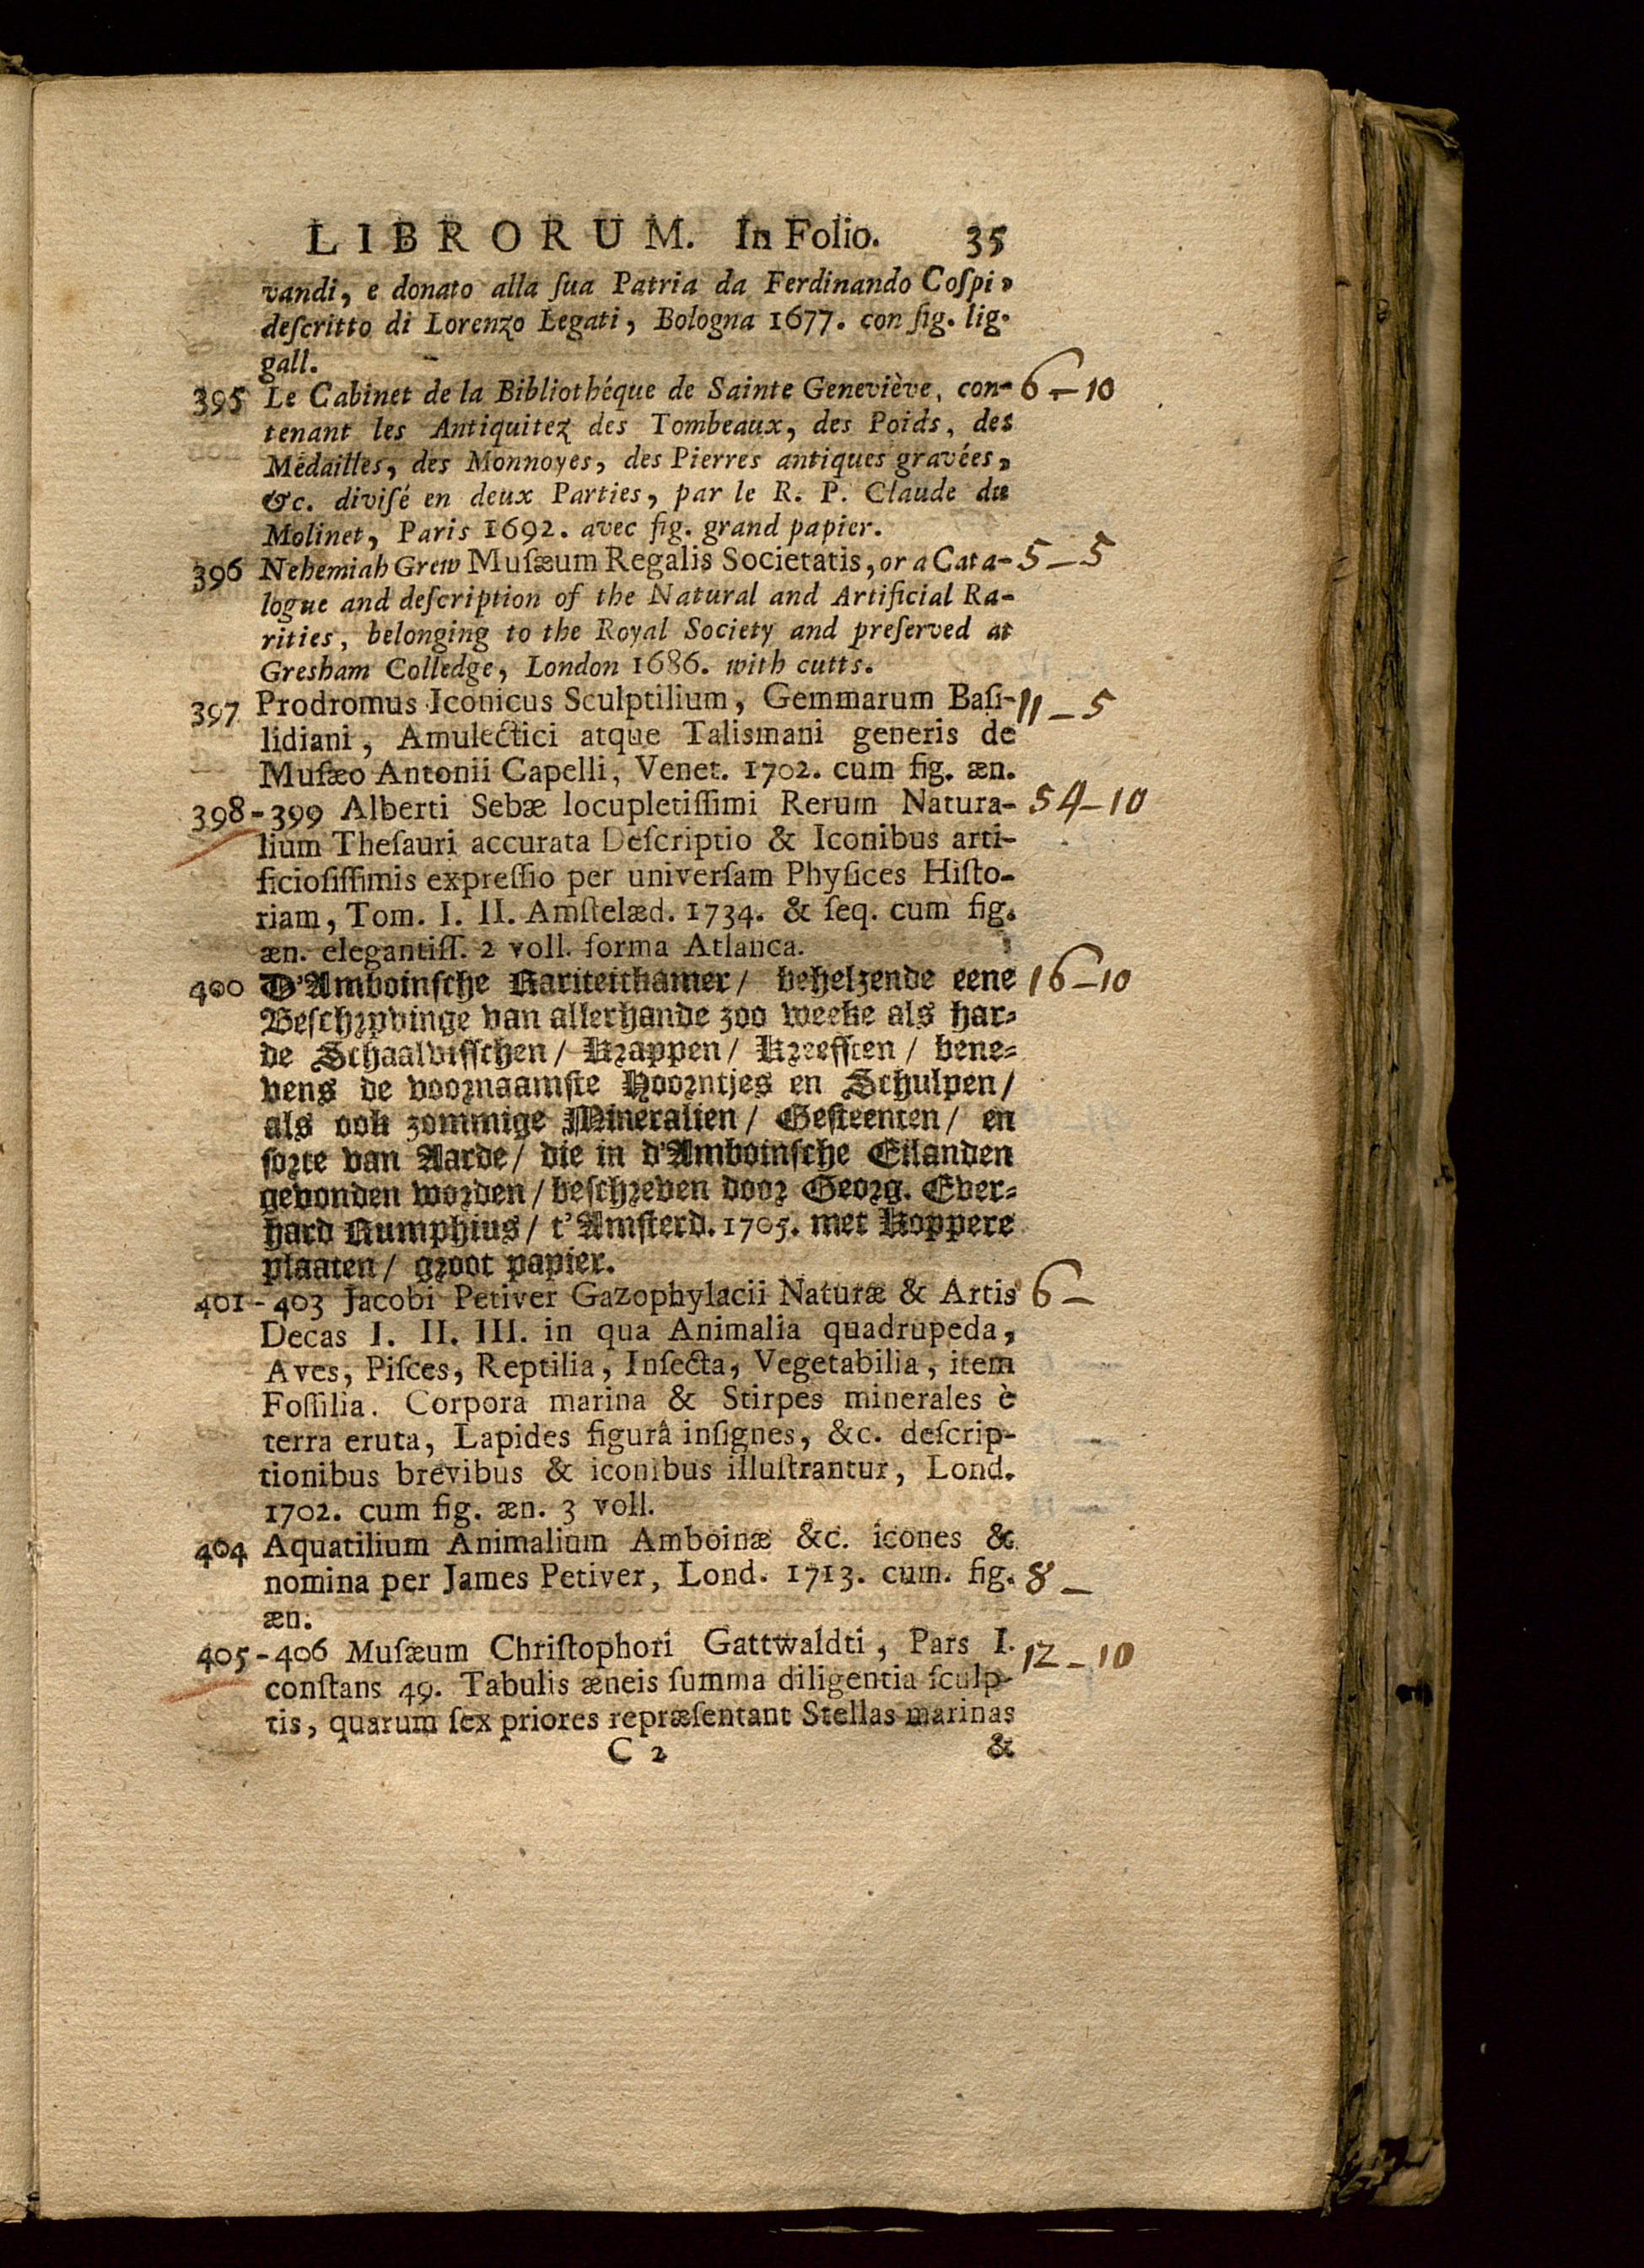 LIBRORUM. In Folio. 35
vandi, e donato alla ſua Patria da Ferdinando Coſpi,
deſcritto di Lorenzo Legati, Bologna 1677. con fig. lig.
gall.
395 Le Cabinet de la Bibliothéque de Sainte Geneviève, con- 6-10
tenant les Antiquitez des Tombeaux, des Poids, des
Médailles, des Monnoyes, des Pierres antiques gravées,
&c. diviſé en deux Parties, par le R. P. Claude du
Molinet, Paris 1692. avec fig. grand papier.
396 Nehemiah Grew Muſæum Regalis Societatis, or a Cata- 5-5
logue and deſcription of the Natural and Artificial Ra-
rities, belonging to the Royal Society and preſerved at
Gresham Colledge, London 1686. with cutts.
397 Prodromus Iconicus Sculptilium, Gemmarum Baſi- 11-5
lidiani, Amulectici atque Talismani generis de
Muſæo Antonii Capelli, Venet. 1702. cum fig. æn.
398-399 Alberti Sebæ locupletiſſimi Rerum Natura- 54-10
lium Theſauri accurata Deſcriptio & Iconibus arti-
ficioſiſſimis expreſſio per univerſam Phyſices Hiſto-
riam, Tom. I. II. Amſtelæd. 1734. & ſeq. cum fig.
æn. elegantiſſ. 2 voll. forma Atlanca.
400 D'Amboinſche Rariteitkamer / behelzende eene 16-10
Beſchryvinge van allerhande zoo weeke als har-
de Schaalviſſchen / Krappen / Kreefften / bene-
vens de voornaamſte Hoorntjes en Schulpen /
als ook zommige Mineralien / Geſteenten / en
ſorte van Aarde / die in d'Amboinſche Eilanden
gevonden worden / beſchreven door Georg. Ever-
hard Rumphius / t'Amſterd. 1705. met Koppere
plaaten / groot papier.
401-403 Jacobi Petiver Gazophylacii Naturæ & Artis 6-
Decas I. II. III. in qua Animalia quadrupeda,
Aves, Piſces, Reptilia, Inſecta, Vegetabilia, item
Foſſilia. Corpora marina & Stirpes minerales è
terra eruta, Lapides figurâ inſignes, &c. deſcrip-
tionibus brevibus & iconibus illuſtrantur, Lond.
1702. cum fig. æn. 3 voll.
404 Aquatilium Animalium Amboinæ &c. icones &
nomina per James Petiver, Lond. 1713. cum. fig. 8-
æn.
405-406 Muſæum Chriſtophori Gattwaldti, Pars I. 12-10
conſtans 49. Tabulis æneis ſumma diligentia ſculp-
tis, quarum ſex priores repræſentant Stellas marinas
C 2 &